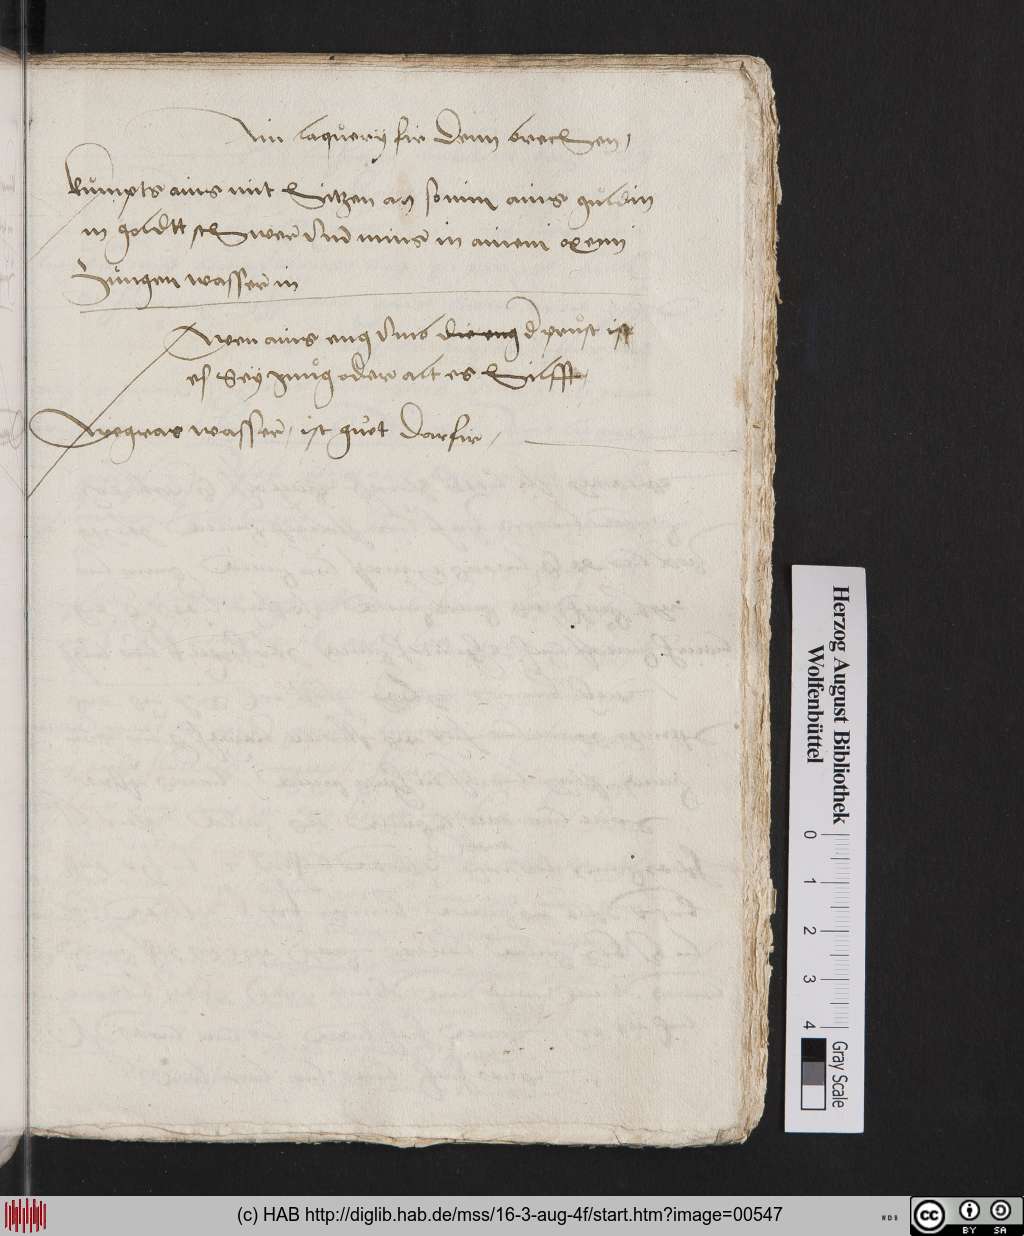 Ain laquerÿ fir denn brechen,
kůmpts ains mit hitzen an so nim ains guldin
in goldtt schwer Vnd nims in ainem oxenn
Zůngen wasser in
Wen ains eng Vmb die eng d průst ist
es seÿ Jung oder alt es hilfft,
Wegrar wasser, ist gůot darfir,
Herzog August Bibliothek
Wolfenbüttel
0 1 2 3 4
Gray Scale
(c) HAB http://diglib.hab.de/mss/16-3-aug-4f/start.htm?image=00547
cc BY SA